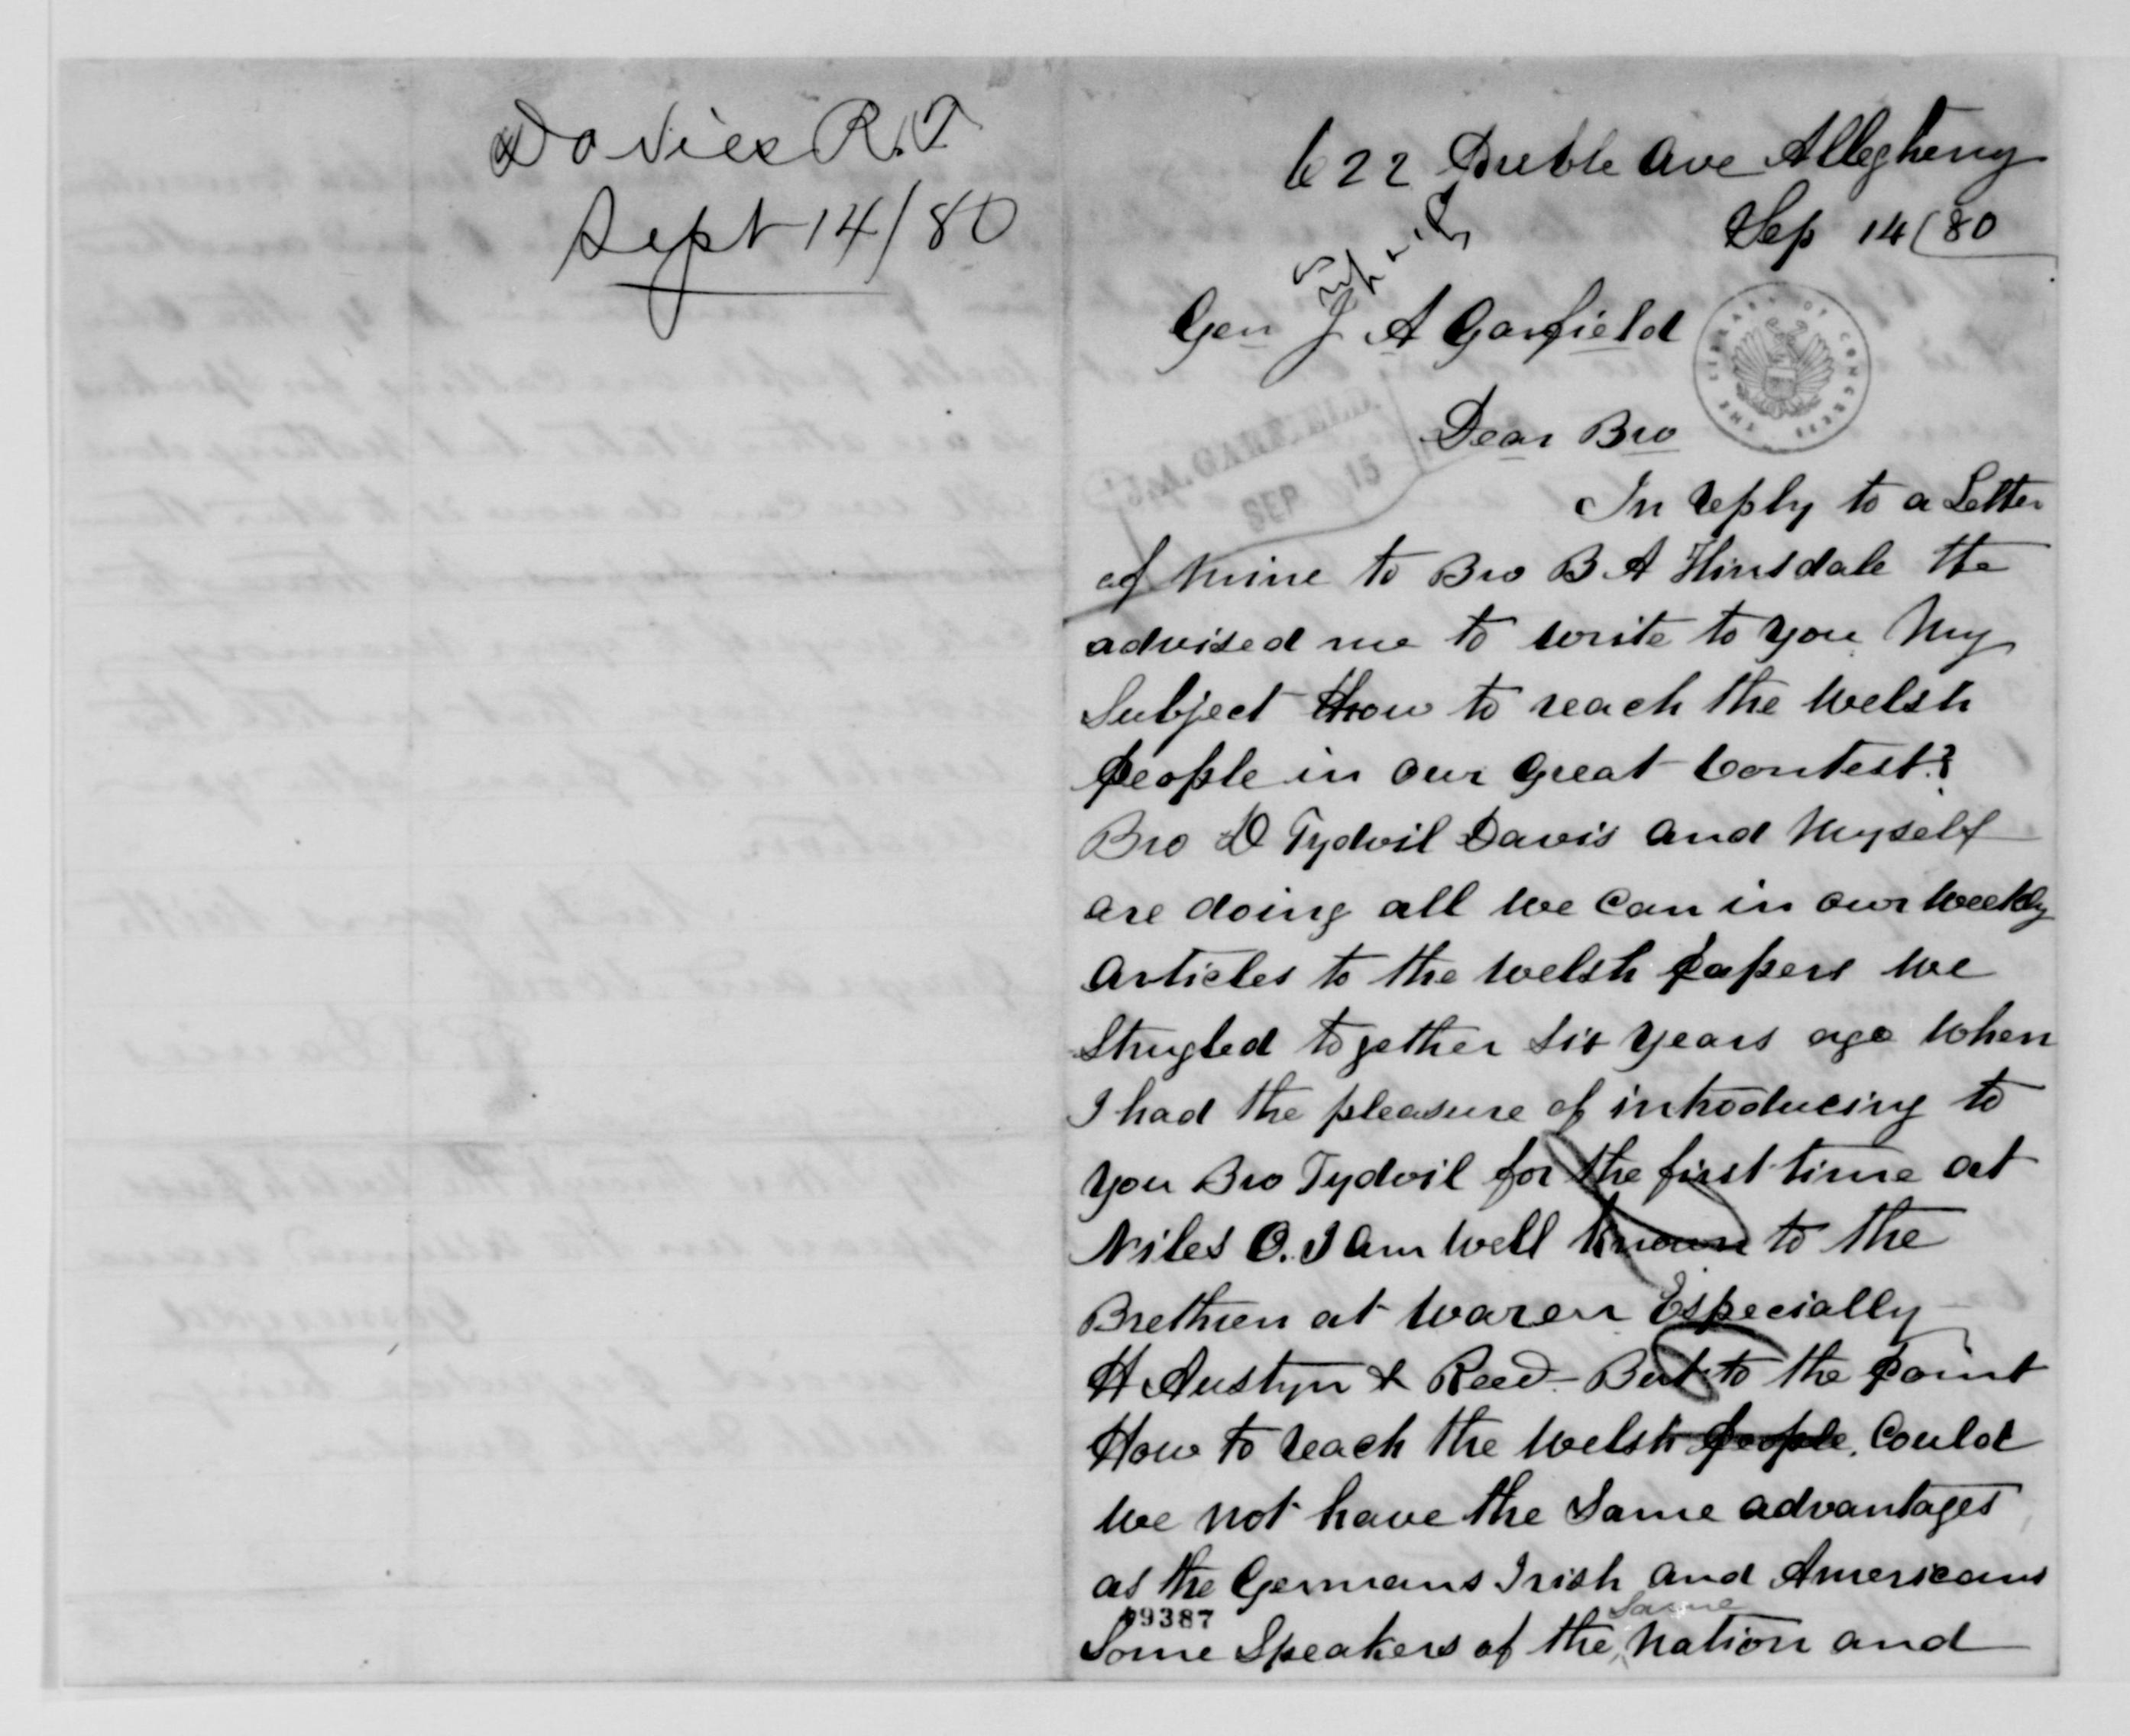 Davies R.T
Sept 14/80
622 Preble Ave Allegheny
Sep 14/80
Gen J A Garfield
THE LIBRARY OF CONGRESS
Dear Bro
J.A. GARFIELD.
SEP 15
In reply to a Letter
of mine to Bro B A Hinsdale the
advised me to write to you My
Subject How to reach the Welsh
people in our great Contest?
Bro D Tydvil Davis and Myself
are doing all we can in our weekly
articles to the Welsh papers we
Strugled together six years ago when
I had the pleasure of introducing to
you Bro Tydvil for the first time at
Niles O. I am well known to the
Brethren at Waren Especially
H Austyn & Reed - But to the point
How to reach the Welsh people. Could
we not have the Same advantages
as the Germans Irish and Americans
19387
Same
Some Speakers of the nation and